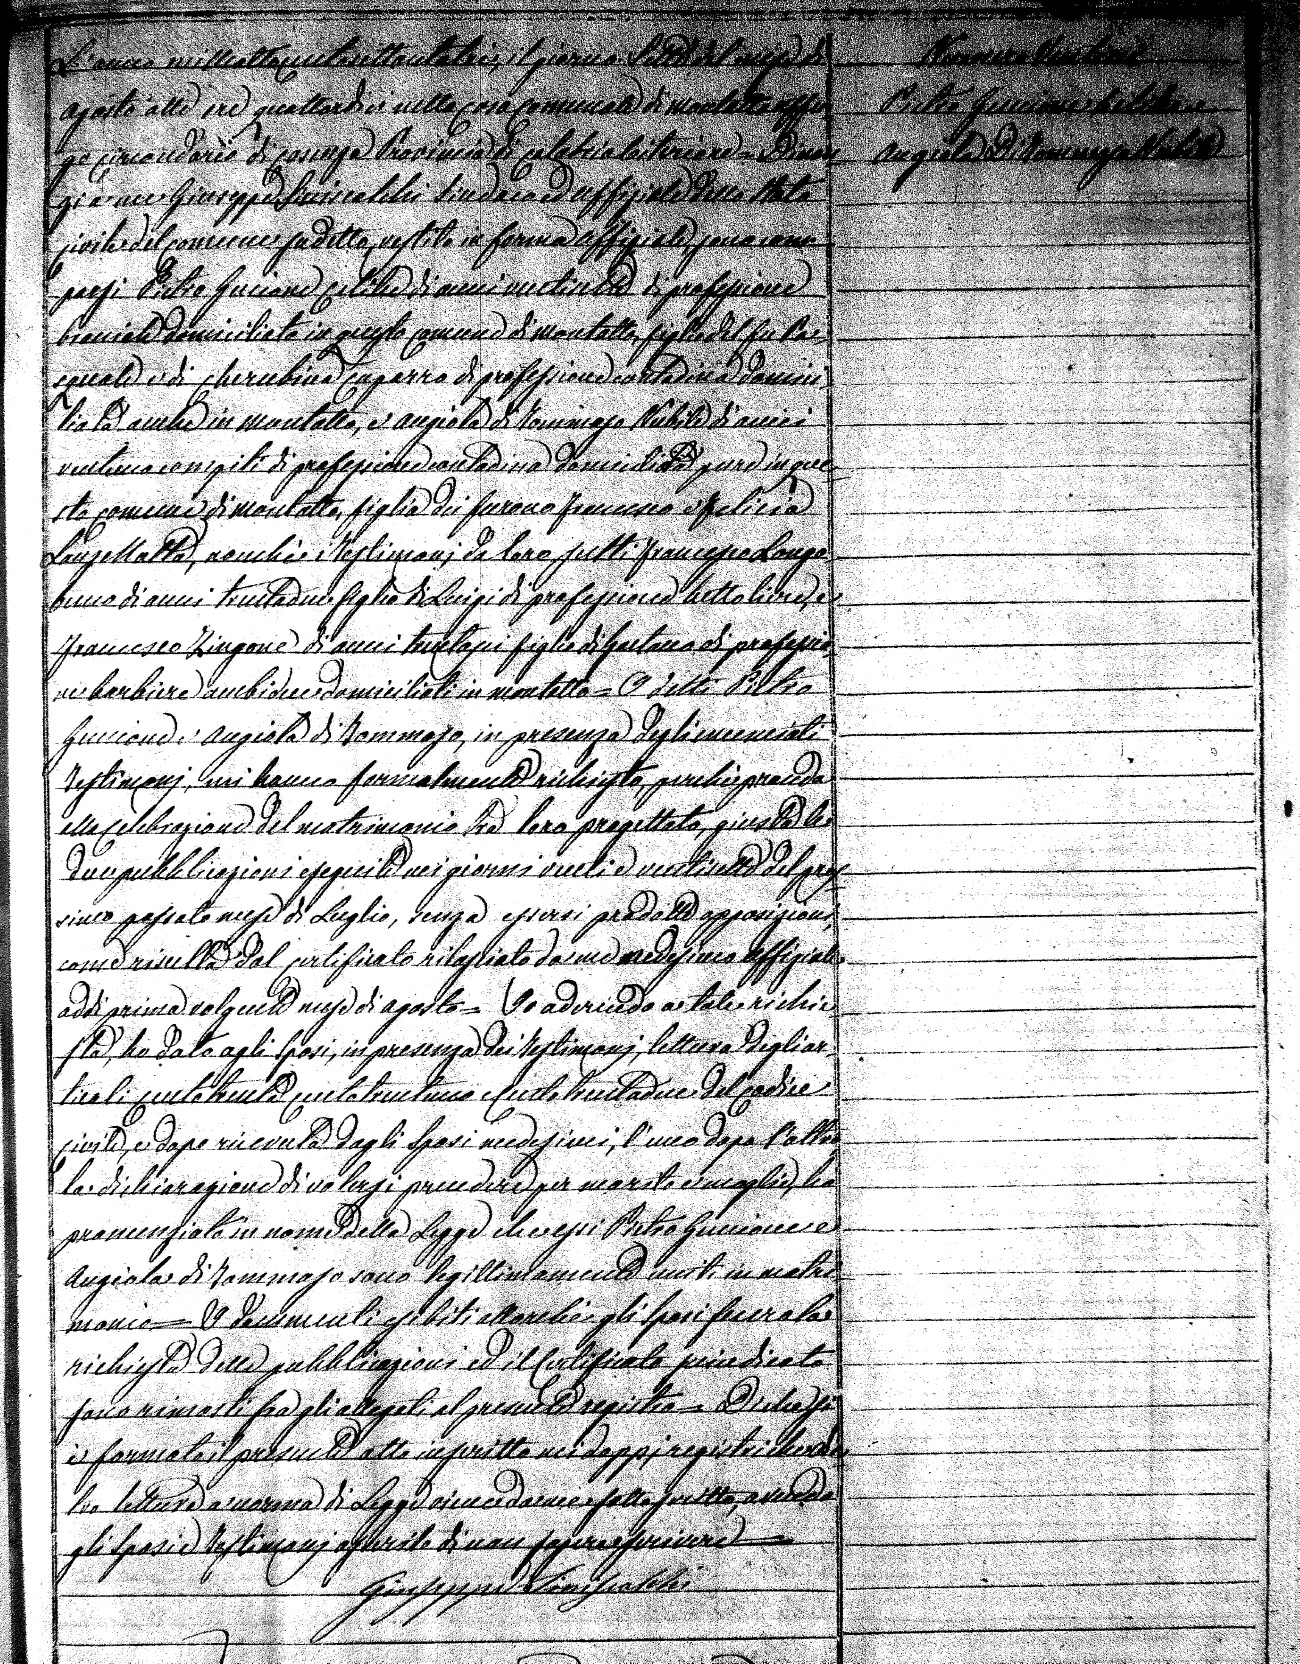 L'anno milleottocentosettantatre, il giorno sette del mese di
agosto alle ore quattordici nella casa comunale di Montalto Uffu
go circondario di Cosenza Provincia di Calabria Citeriore = Dinan
zi a me Giuseppe Siniscalchi Sindaco ed uffiziale dello Stato
civile del comune sudetto, vestito in forma uffiziale, sono com
parsi Pietro Guccione celibe di anni ventisette di professione
bracciale domiciliato in questo comune di Montalto, figlio del fu Pa
squale e di Cherubina Caparro di professione contadina domici
liata anche in Montalto, e Angiola di Tommaso Nubile di anni
ventuno compiti di professione contadina domiciliata pure in que
sto comune di Montalto, figlia dei furono Francesco e Felicia
nonchè i Testimonj da loro scelti Francesco Longo
buco di anni trentadue figlio di Luigi di professione bettoliere, e
Francesco Zingone di anni trentasei figlio di Gaetano di professio
ne barbiere ambidue domiciliati in Montalto = I detti Pietro
Guccione e Angiola di Tommaso, in presenza degli enunciati
Testimonj, mi hanno formalmente richiesto, perchè proceda
alla celebrazione del matrimonio tra loro progettato, giusta le
due pubblicazioni eseguite nei giorni venti e ventisette del pros
simo passato mese di Luglio, senza essersi prodotte opposizioni,
come rivelta dal certificato rilasciato da me medesimo uffiziale
addì primo volgente mese di agosto = Io aderendo a tale richie
sta, ho dato agli Sposi, in presenza dei Testimonj, lettura degli ar
ticoli centotrenta centotrentuno e centotrentadue del codice
civile, e dopo ricevuta dagli Sposi medesimi, l'uno dopo l'altro
la dichiarazione di volersi prendere per marito e moglie, ho
pronunziato in nome della Legge che essi Pietro Guccione e
Angiola di Tommaso sono legittimamente uniti in matri
monio = I documenti esibiti allorchè gli Sposi fecero la
richiesta delle pubblicazioni ed il certificato preindicato
sono rimasti fra gli allegati al presente registro = Di che si
è formato il presente atto inscritto nei doppj registri che
ho letture a norma di Legge viene da me sottoscritto, avendo
gli Sposi e Testimonj asserito di non sapere scrivere =
Giuseppe Siniscalchi
Numero Ventuno
Pietro Guccione celibe
Angiola Di Tommaso Nubile